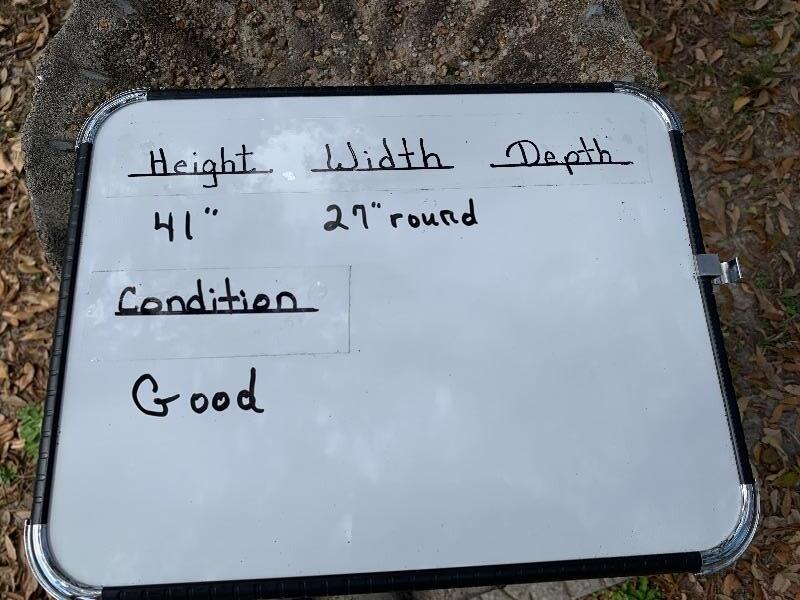 Height Width Depth
41" 27" round
Condition
Good